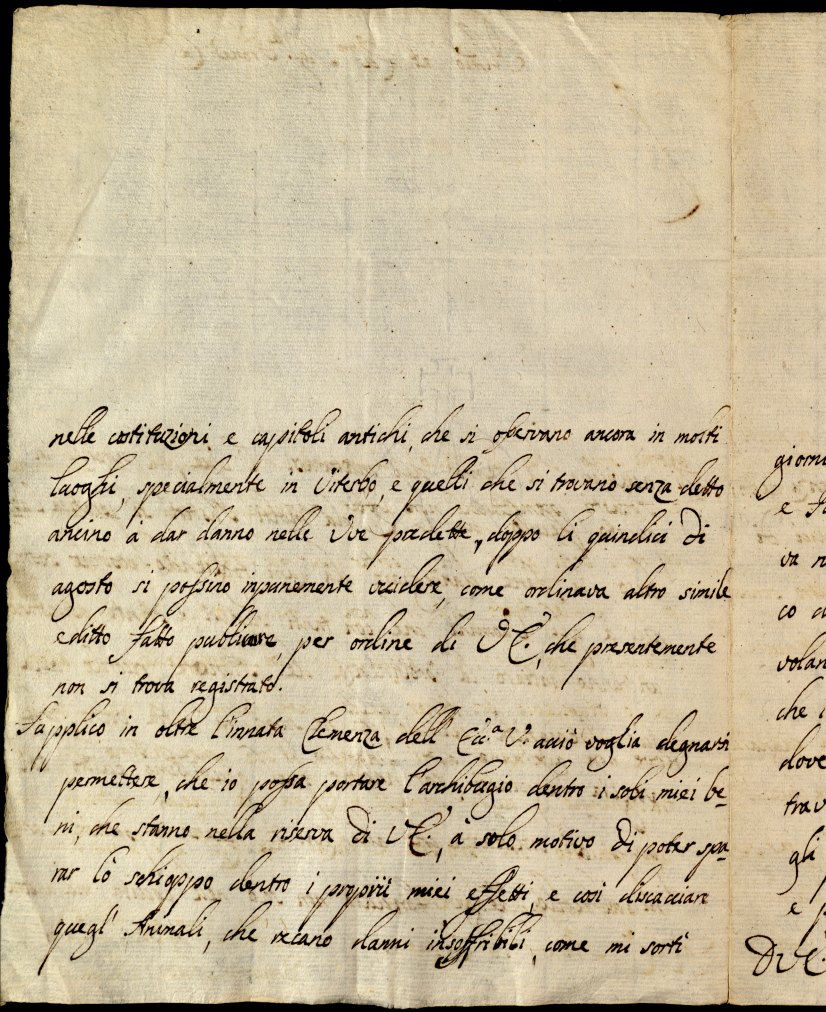 nelle costituzioni e capitoli antichi, che si osservano ancora in molti
luoghi, specialmente in Viterbo, e quelli che si trovano senza detto
ancino à dar danno nelle Uve predette, doppo li quindici di
agosto si possino inpunemente uccidere, come ordinava altro simile
editto fatto publicare, per ordine di V.E., che presentemente
non si trova registrato.
Supplico in oltre l'innata Clemenza dell' Ecc.ª V. acciò voglia degnarsi
permettere, che io possa portare l'archibugio dentro i soli miei be-
ni, che stanno nella riserva di V.E., à solo motivo di poter spa-
rar lo schioppo dentro i proprii miei effetti, e così discacciare
quegl' Animali, che recano danni insoffribili, come mi sortì
giorni
e
va
co
volan
che
dove
trav
gli
e
Di V.E.